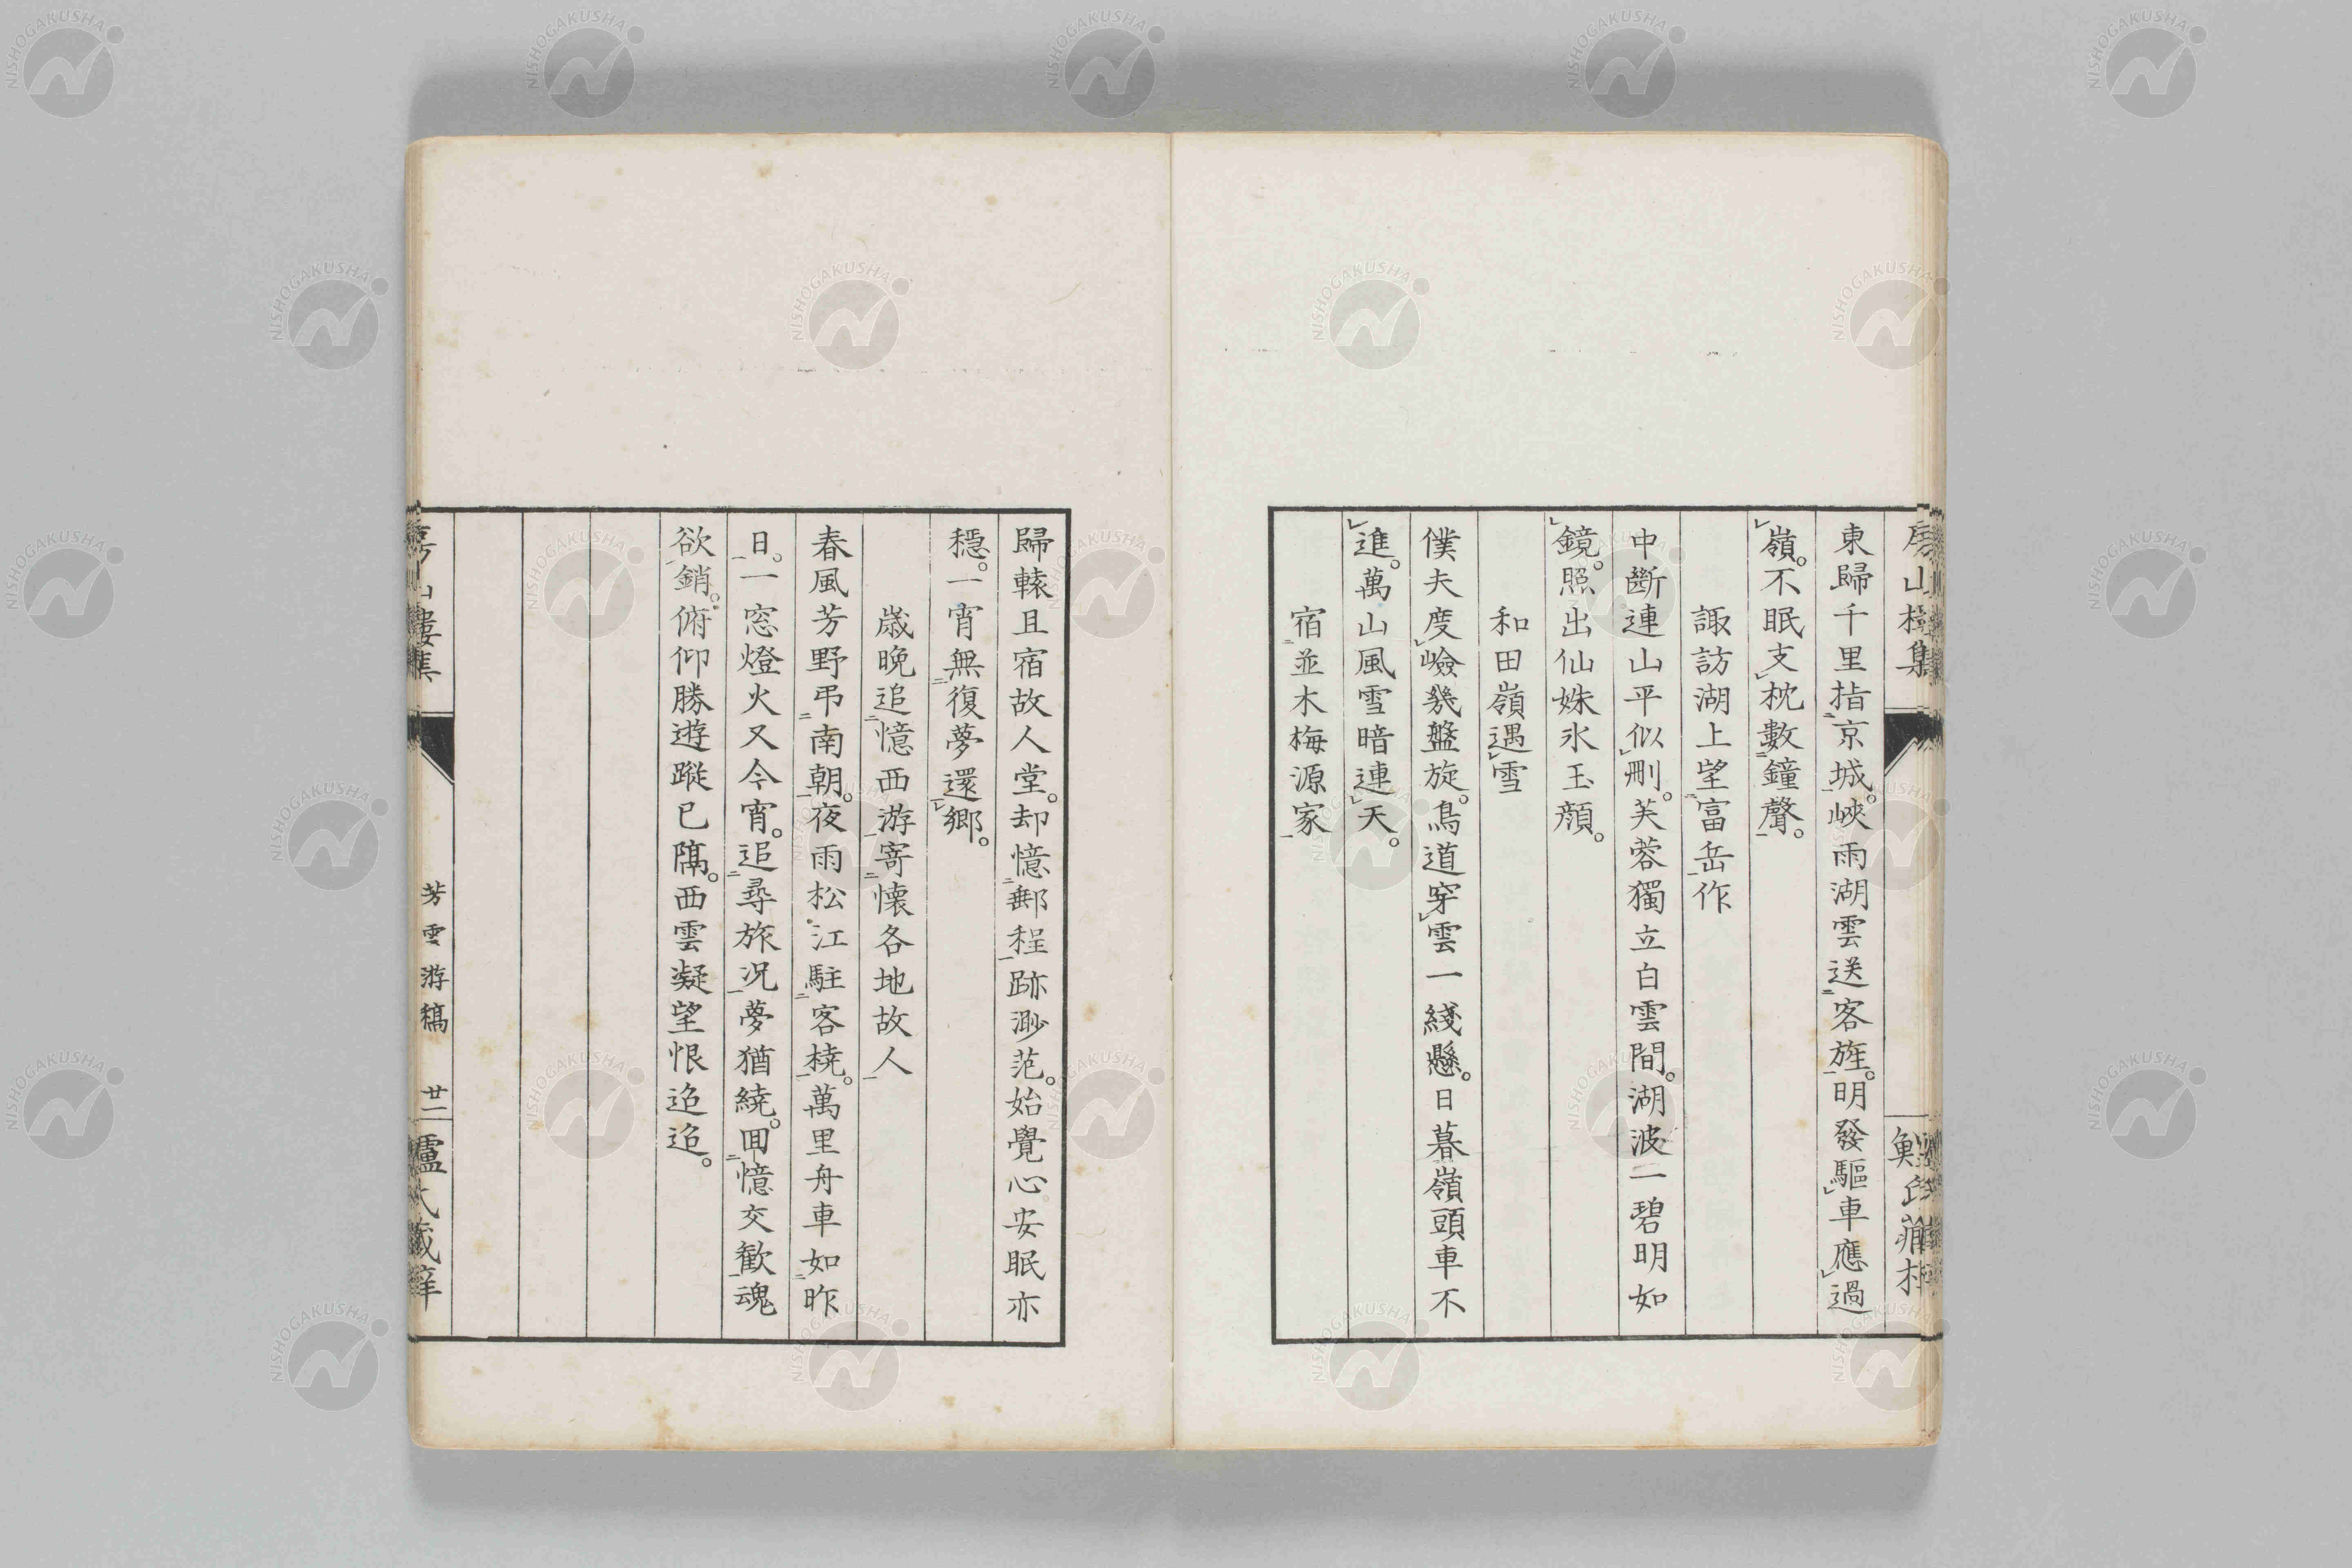 東歸千里指京城。峽雨湖雲送客旌。明發驅車應過
嶺。不眠支枕數鐘聲。
諏訪湖上望富岳作
中斷連山平似刪。芙蓉獨立白雲間。湖波一碧明如
鏡。照出仙姝氷玉顔。
和田嶺遇雪
僕夫度嶮幾盤旋。鳥道穿雲一綫懸。日暮嶺頭車不
進。萬山風雪暗連天。
宿並木梅源家
歸轅且宿故人堂。却憶郵程跡渺茫。始覺心安眠亦
穩。一宵無復夢還鄉。
歳晚追憶西游寄懷各地故人
春風芳野弔南朝。夜雨松江駐客橈。萬里舟車如昨
日。一窓燈火又今宵。追尋旅況夢猶繞。回憶交歡魂
欲銷。俯仰勝遊蹤已隔。西雲凝望恨迢迢。
芳雲游稿
廿二
NISHOGAKUSHA